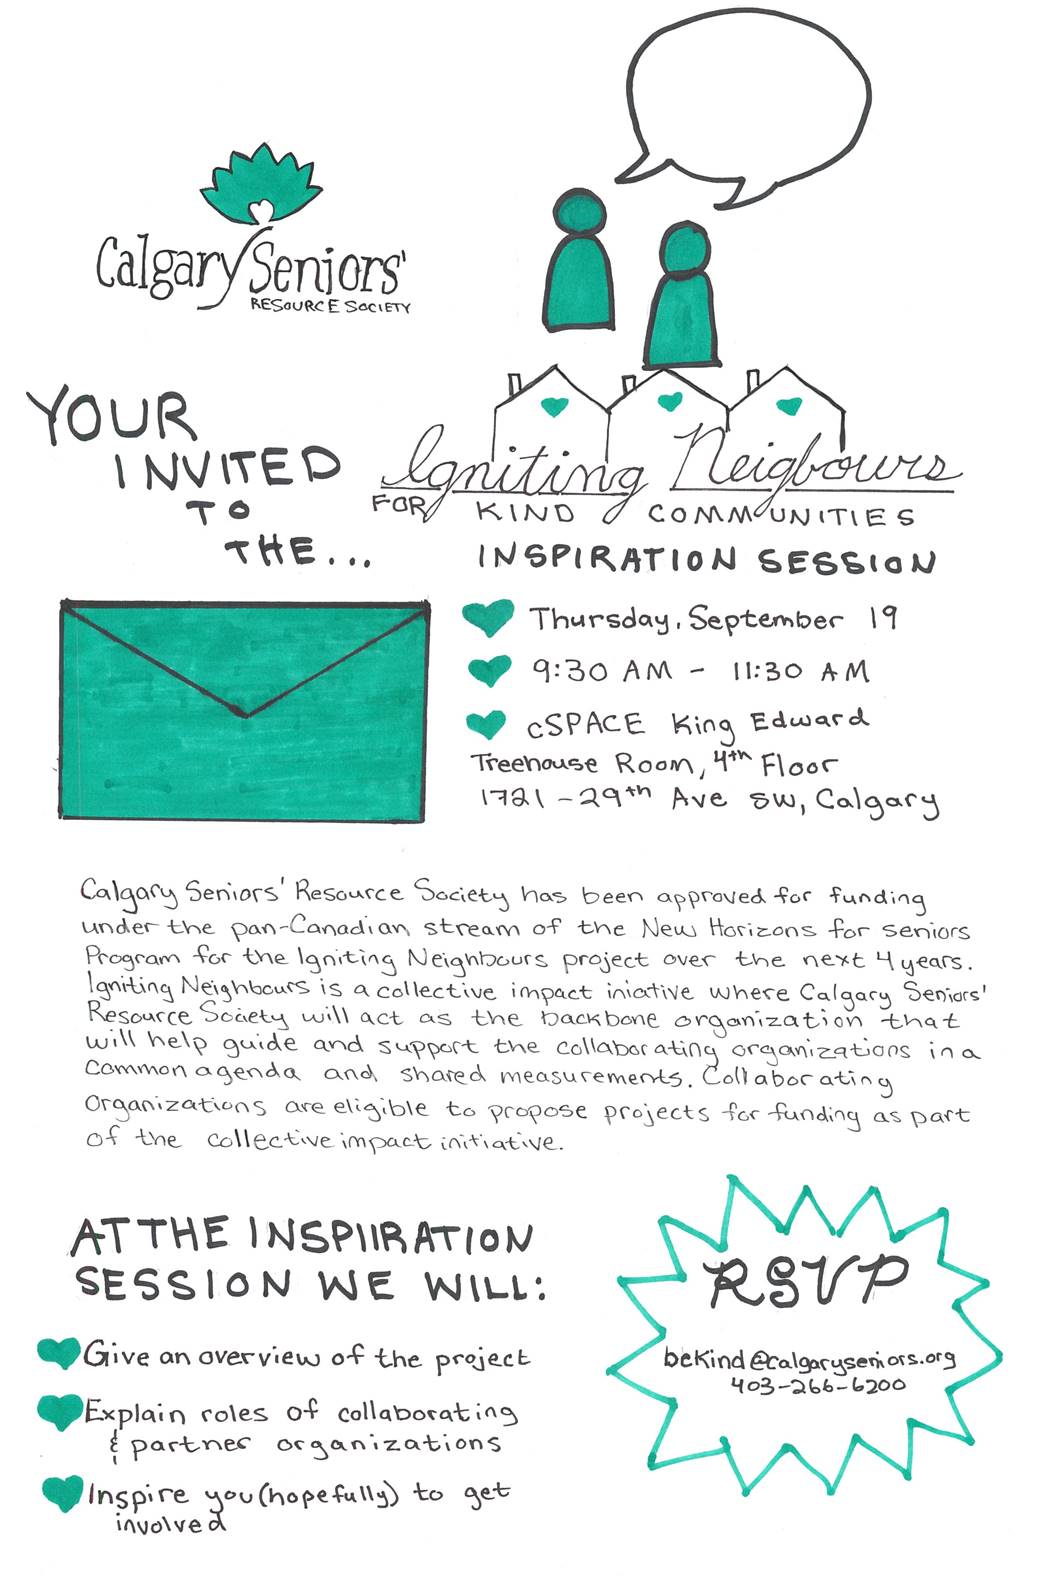 Calgary Seniors'
RESOURCE SOCIETY
YOUR
INVITED
TO
THE...
Igniting Neigbours
FOR KIND COMMUNITIES
INSPIRATION SESSION
Thursday, September 19
9:30 AM - 11:30 AM
cSPACE King Edward
Treehouse Room, 4th Floor
1721 - 29th Ave SW, Calgary
Calgary Seniors' Resource Society has been approved for funding
under the pan-Canadian stream of the New Horizons for seniors
Program for the Igniting Neighbours project over the next 4 years.
Igniting Neighbours is a collective impact iniative where Calgary Seniors'
Resource Society will act as the backbone organization that
will help guide and support the collaborating organizations in a
common agenda and shared measurements. Collaborating
Organizations are eligible to propose projects for funding as part
of the collective impact initiative.
AT THE INSPIIRATION
SESSION WE WILL:
Give an overview of the project
Explain roles of collaborating
& partner organizations
Inspire you (hopefully) to get
involved
RSVP
beKind@calgaryseniors.org
403-266-6200